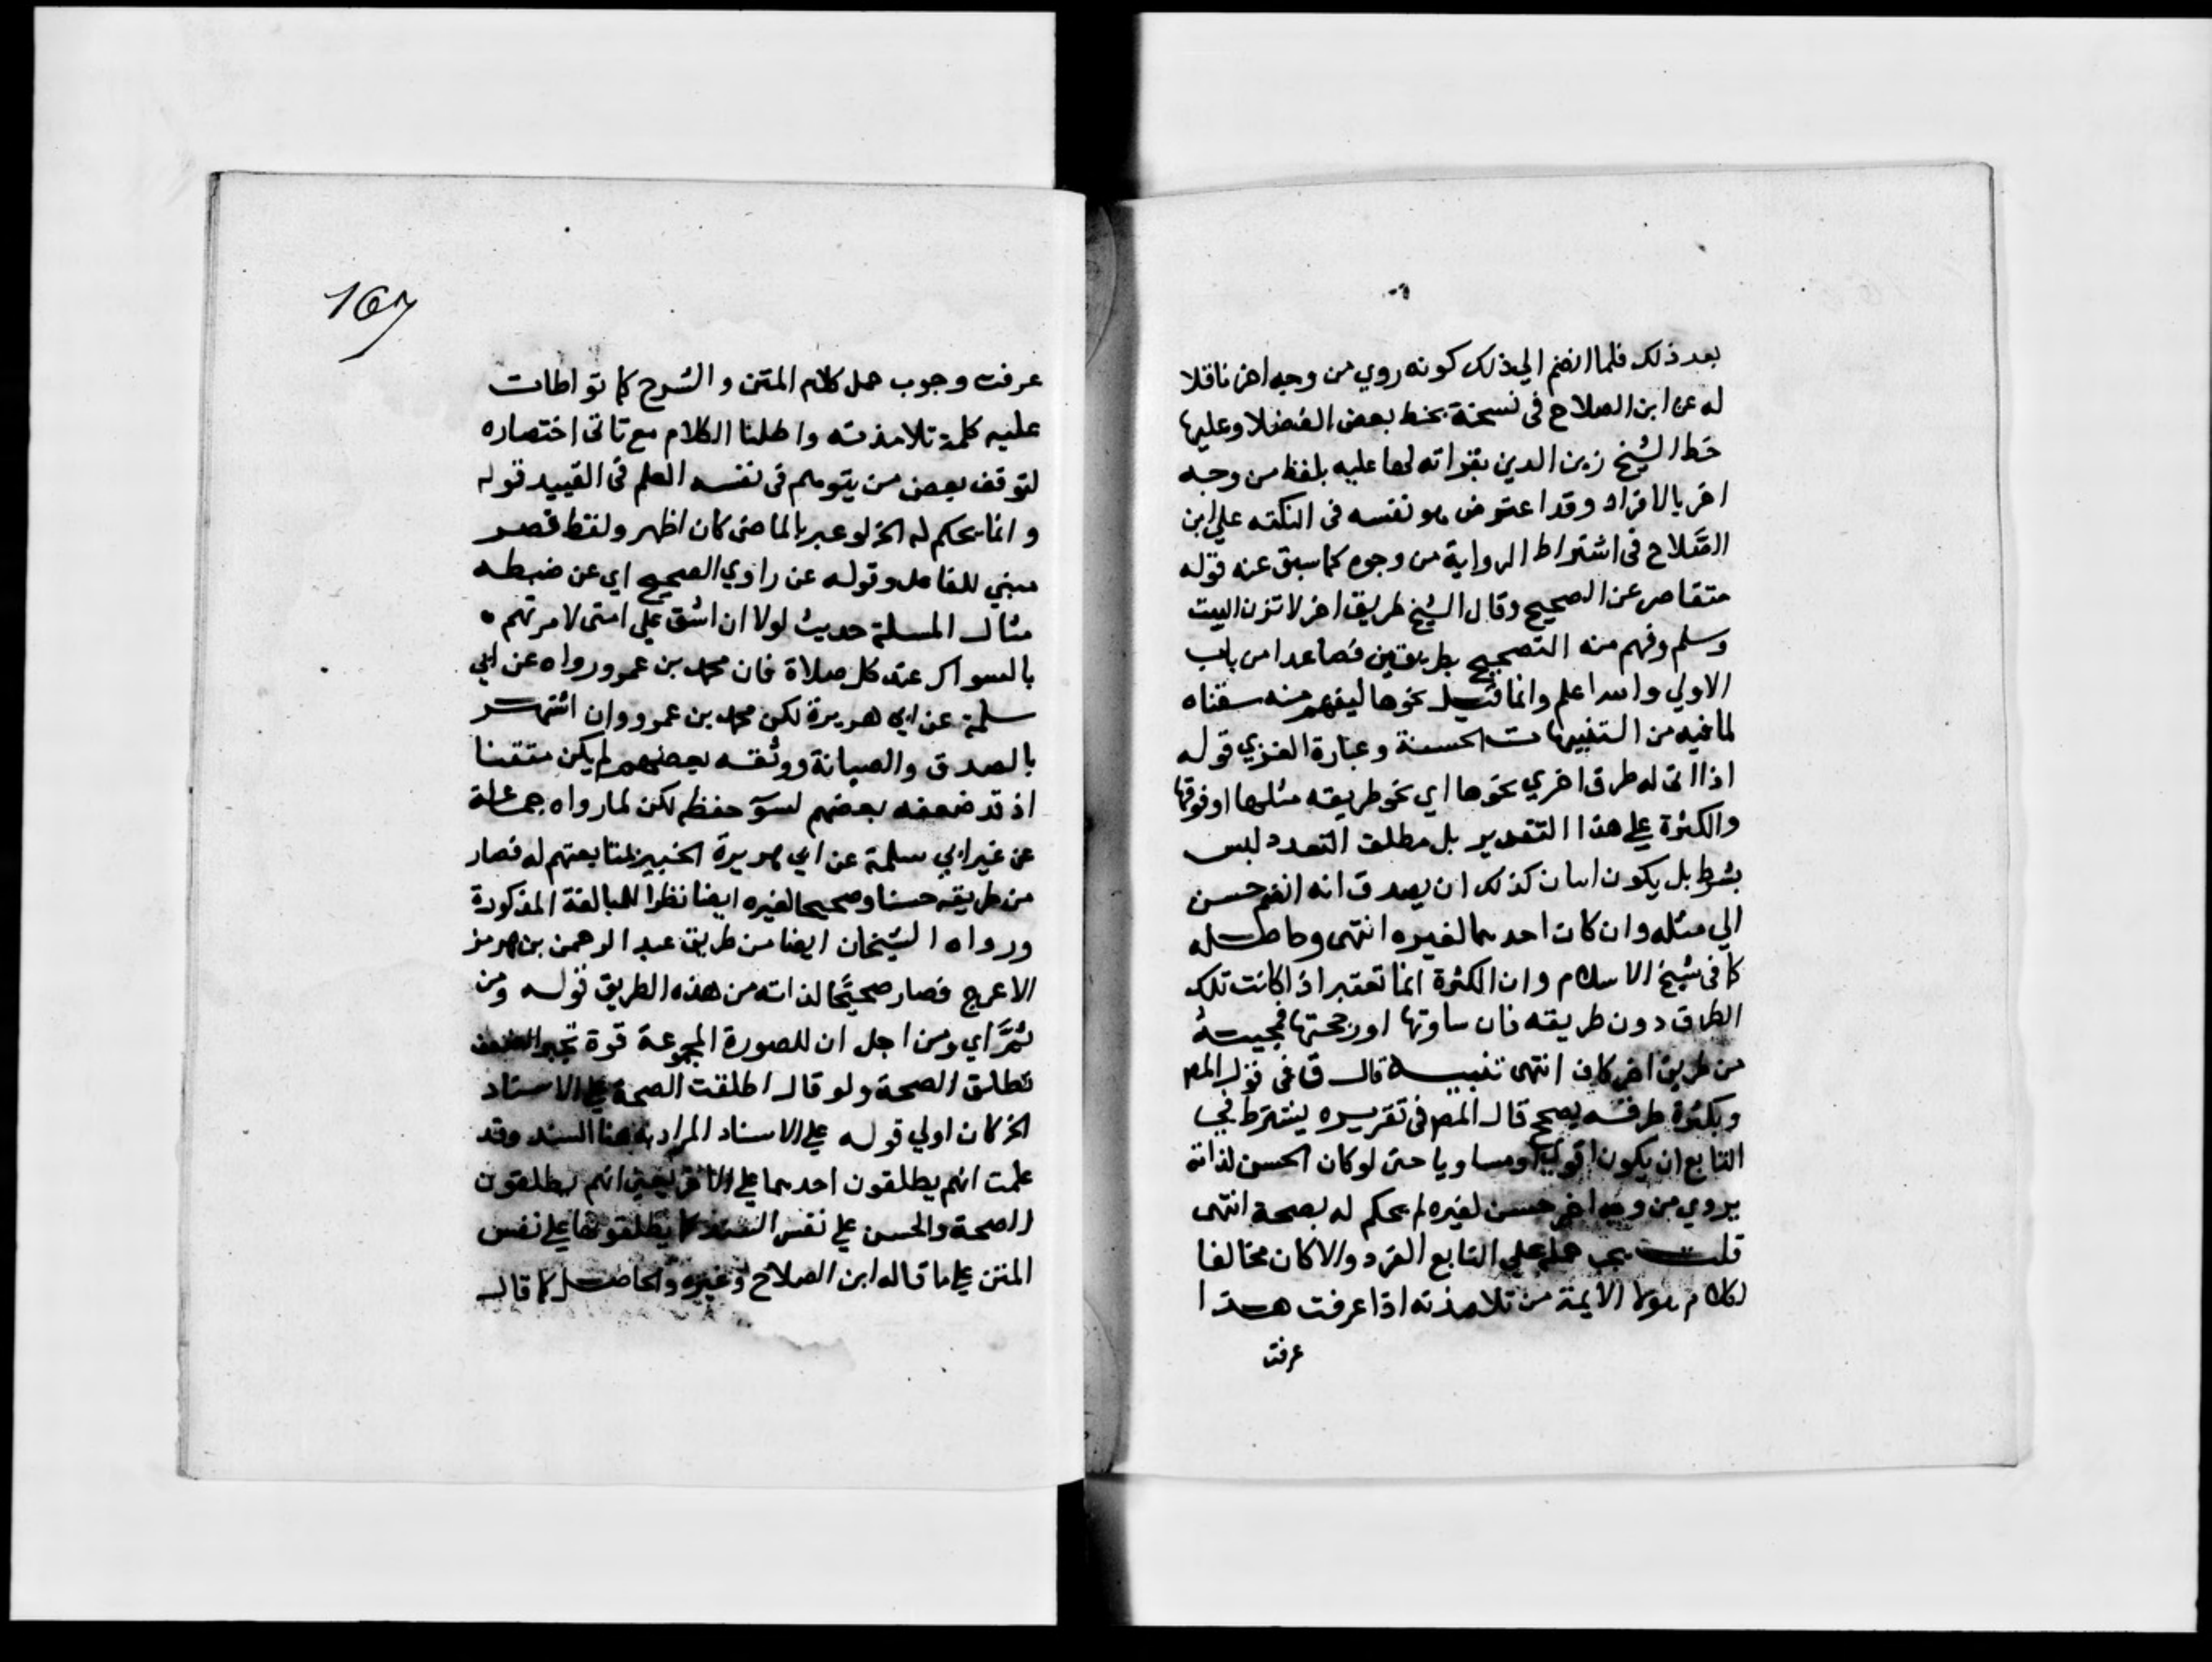 بعد ذلك فلما انضم الي ذلك كونه روي من وجه اخر ناقلا
له عن ابن الصلاح فى نسخة بخط بعض الفضلا وعليها
خط الشيخ زين الدين بقراته لها عليه بلفظ من وجه
اخر بالافراد وقد اعترض هو نفسه فى النكته علي ابن
الصلاح فى اشتراط الرواية من وجوه كما سبق عنه قوله
متقاصر عن الصحيح وقال الشيخ طريق اخر لا تزن البيت
وسلم وفهم منه التصحيح بطريقين فصاعدا من باب
الاولي والله اعلم وانما قيل نحوها ليفهم منه سقناه
لما فيه من التنبيهات الحسنة وعبارة الغزي قوله
اذا اتى له طرق اخري نحوها اي نحو طريقه مثلها او فوقها
والكثرة علي هذا التقدير بل مطلق التعدد ليس
بشرط بل يكون اتيان كذلك ان يصدق انه انضم حسن
الي مثله وان كان احدهما لغيره انتهى وحاصله
كما فى شيخ الاسلام وان الكثرة انما تعتبر اذا كانت تلك
الطرق دون طريقه فان ساوتها او رجحتها فمجيئه
من طريق اخر كاف انتهى تنبيه قال ق فى قول المص
وبكثرة طرقه يصحح قال المص فى تقريره يشترط فى
التابع ان يكون اقوي او مساويا حتى لو كان الحسن لذاته
يروي من وجه اخر حسن لغيره لم يحكم له بصحة انتهى
قلت يجب حمله علي التابع الفرد والا كان مخالفا
لكلام هولا الايمة من تلامذته اذا عرفت هذا
عرفت
167
عرفت وجوب حمل كلام المتن والشرح كما تواطات
عليه كلمة تلامذته واطلنا الكلام مع تاتى اختصاره
لتوقف بعض من يتوهم فى نفسه العلم فى القييد قوله
وانما يحكم له الخ لو عبر بالماضى كان اظهر ولفظ قصر
مبني للفاعل وقوله عن راوي الصحيح اي عن ضبطه
مثال المسلة حديث لولا ان اشق علي امتى لامرتهم
بالسواك عند كل صلاة فان محمد بن عمرو رواه عن ابي
سلمة عن ابي هريرة لكن محمد بن عمرو وان اشتهر
بالصدق والصيانة ووثقه بعضهم لم يكن متقنا
اذ قد ضعفه بعضهم لسوء حفظه لكن لما رواه جماعة
عن غير ابي سلمة عن ابي هريرة لمتابعتهم له فصار
من طريقه حسنا وصحيحا لغيره ايضا نظرا للمبالغة المذكورة
ورواه الشيخان ايضا من طريق عبد الرحمن بن هرمز
الاعرج فصار صحيحا لذاته من هذه الطريق قوله ومن
ثم اي ومن اجل ان للصورة المجموعة قوة تجبر
تطلق الصحة ولو قال اطلقت الصحة علي الاسناد
الخ كان اولي قوله علي الاسناد المراد به هنا السند وقد
علمت انهم يطلقون احدهما علي الاخر يعني انهم يطلقون
الصحة والحسن علي نفس السند كما يطلقونها علي نفس
المتن علي ما قاله ابن الصلاح وغيره والحاصل كما قال